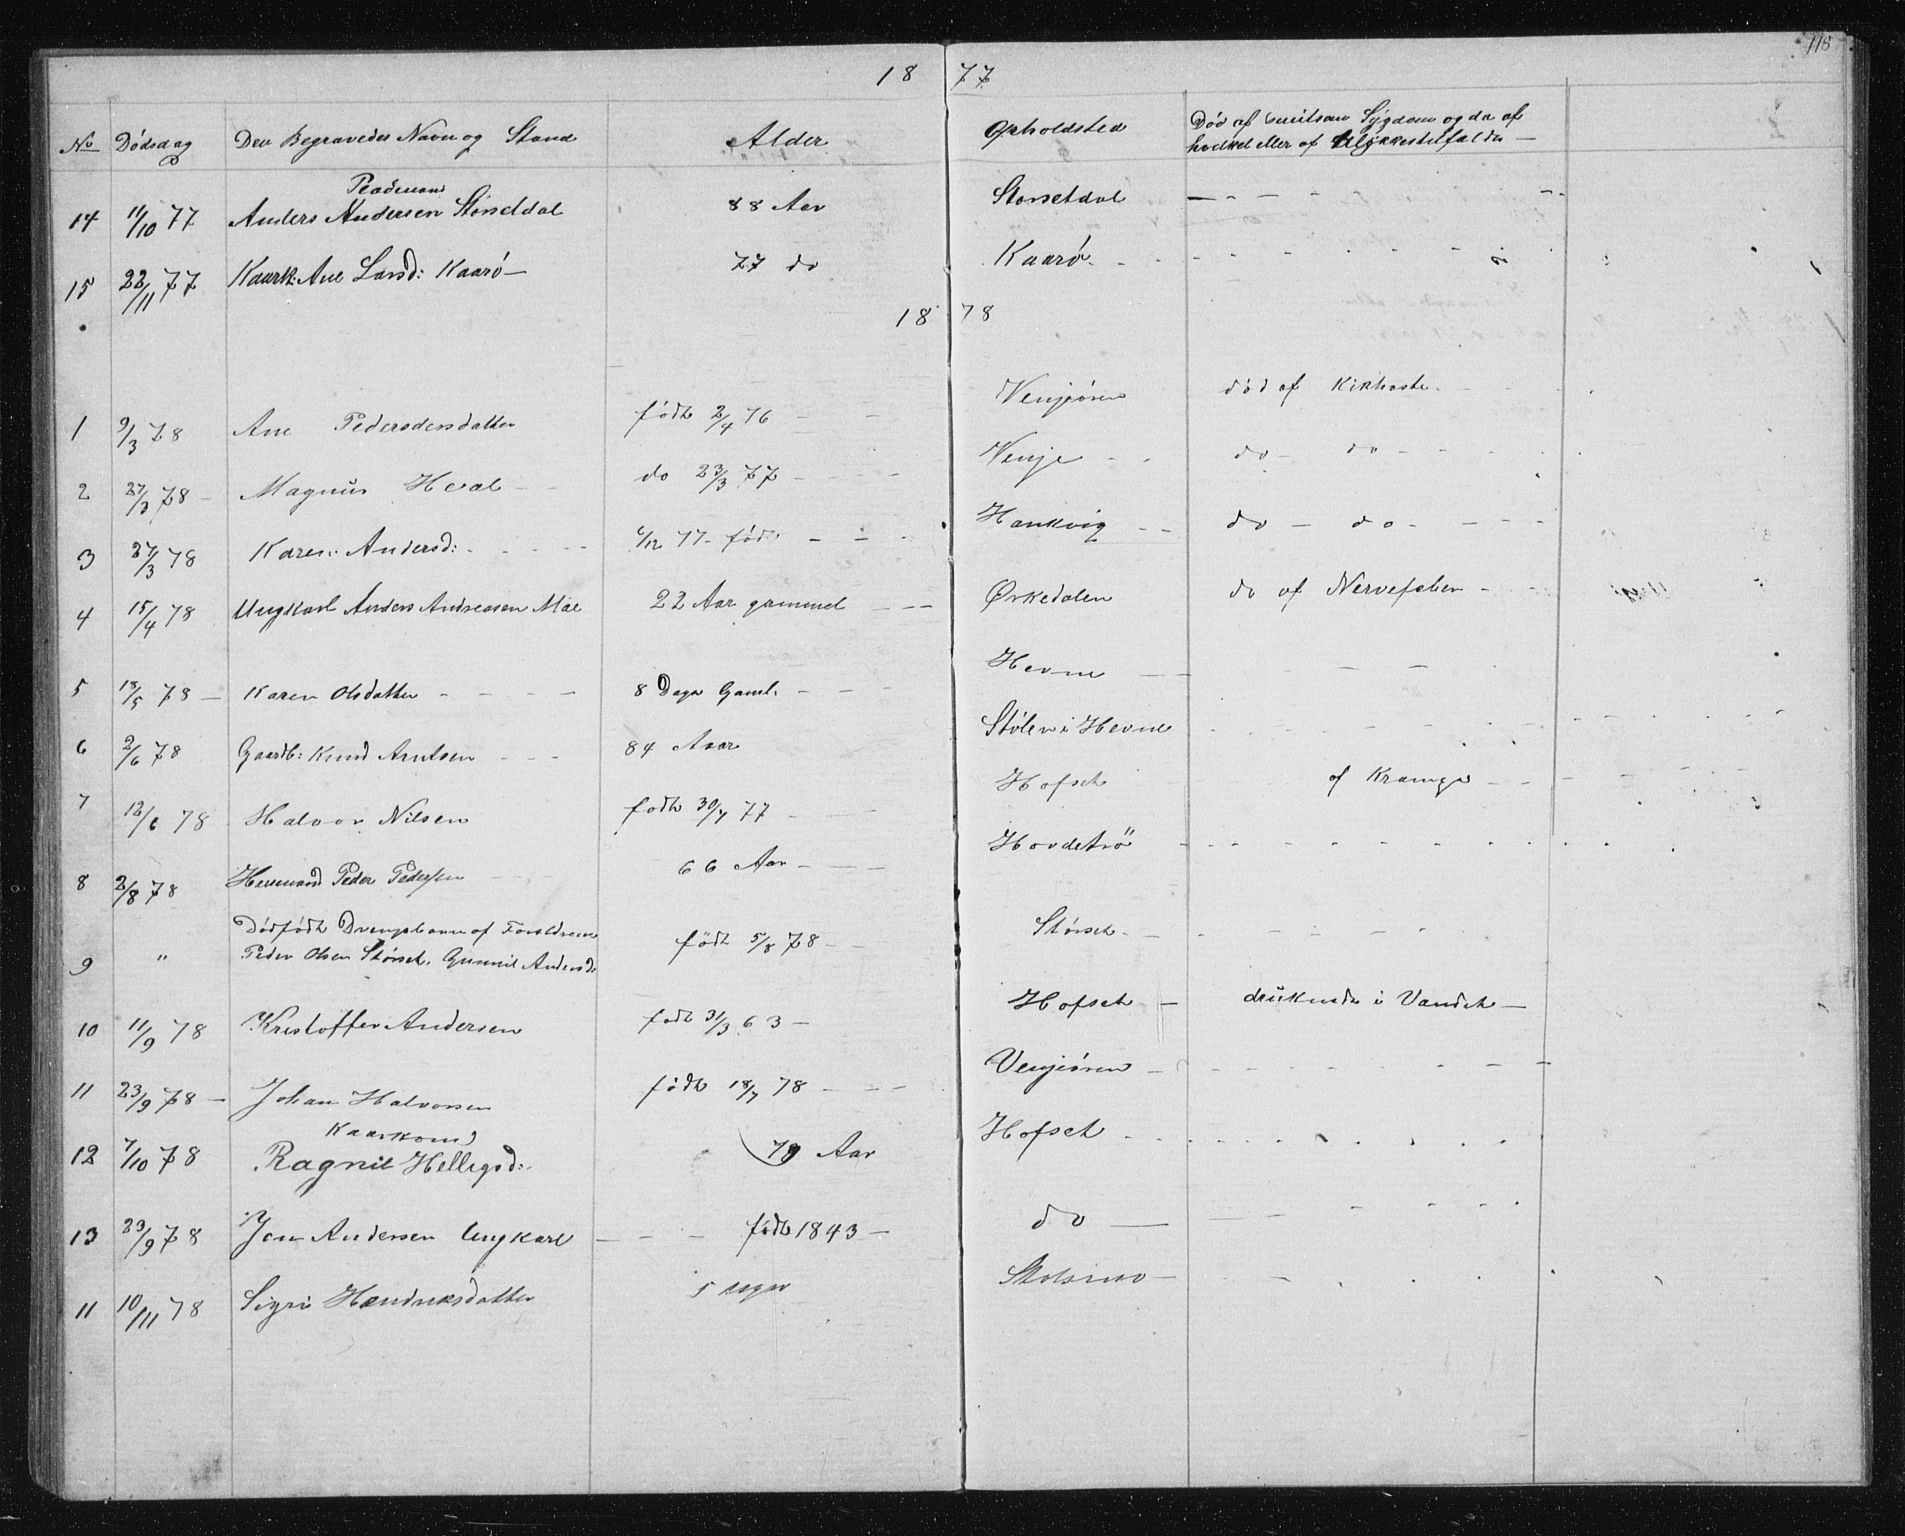 118
18 77
No Dødsdag Den Begravedes Navn og Stand Alder Opholdsted Død af smitsom Sygdom og da af
hvilket eller af Ulykkestilfælde —
14 11/10 77 Anders Andersen Størsetdal 88 Aar Storsetdal
15 22/11 77 Kaark: Ane Larsd: Kaarö — 77 do Kaarø
18 78
1 9/3 78 Ane Pedersdensdatter født 2/4 76 Venjeören død af Kikhoste
2 27/3 78 — Magnus Heval do 23/3 77 Venje do — do
3 27/3 78 Karen: Andersd: 6/12 77 — født Hankvig do — do
4 15/4 78 Ungkarl Anders Andreasen Moe 22 Aar gammel Ørkedalen do af Nervefeber
5 18/5 78 — Karen Olsdatter 8 Dage Gaml. Hevne
6 2/6 78 Gaardb: Knud Arntsen 84 Aar Stølen i Hevne
7 12/6 78 Halvor Nilsen født 30/7 77 Hofset af Krampe
8 2/8 78 Peder Pedersen 66 Aar Hovdetrö
Dødfødt Drengebarn af Forældrene
9 " Peder Olsen Størset. Gunnil Andersd: født 5/8 78 Størset
10 11/9 78 Kristoffer Andersen født 31/3 63 — Hofset — druknede i Vandet —
11 23/9 78 — Johan Halvorsen født 18/7 78 Venjeören
Kaarkone
12 7/10 78 Ragnil Helligsd: 79 Aar Hofset
13 29/9 78 Jon Andersen Ungkarl født 1843 — do
11 10/11 78 Sigri Hendriksdatter 5 uger